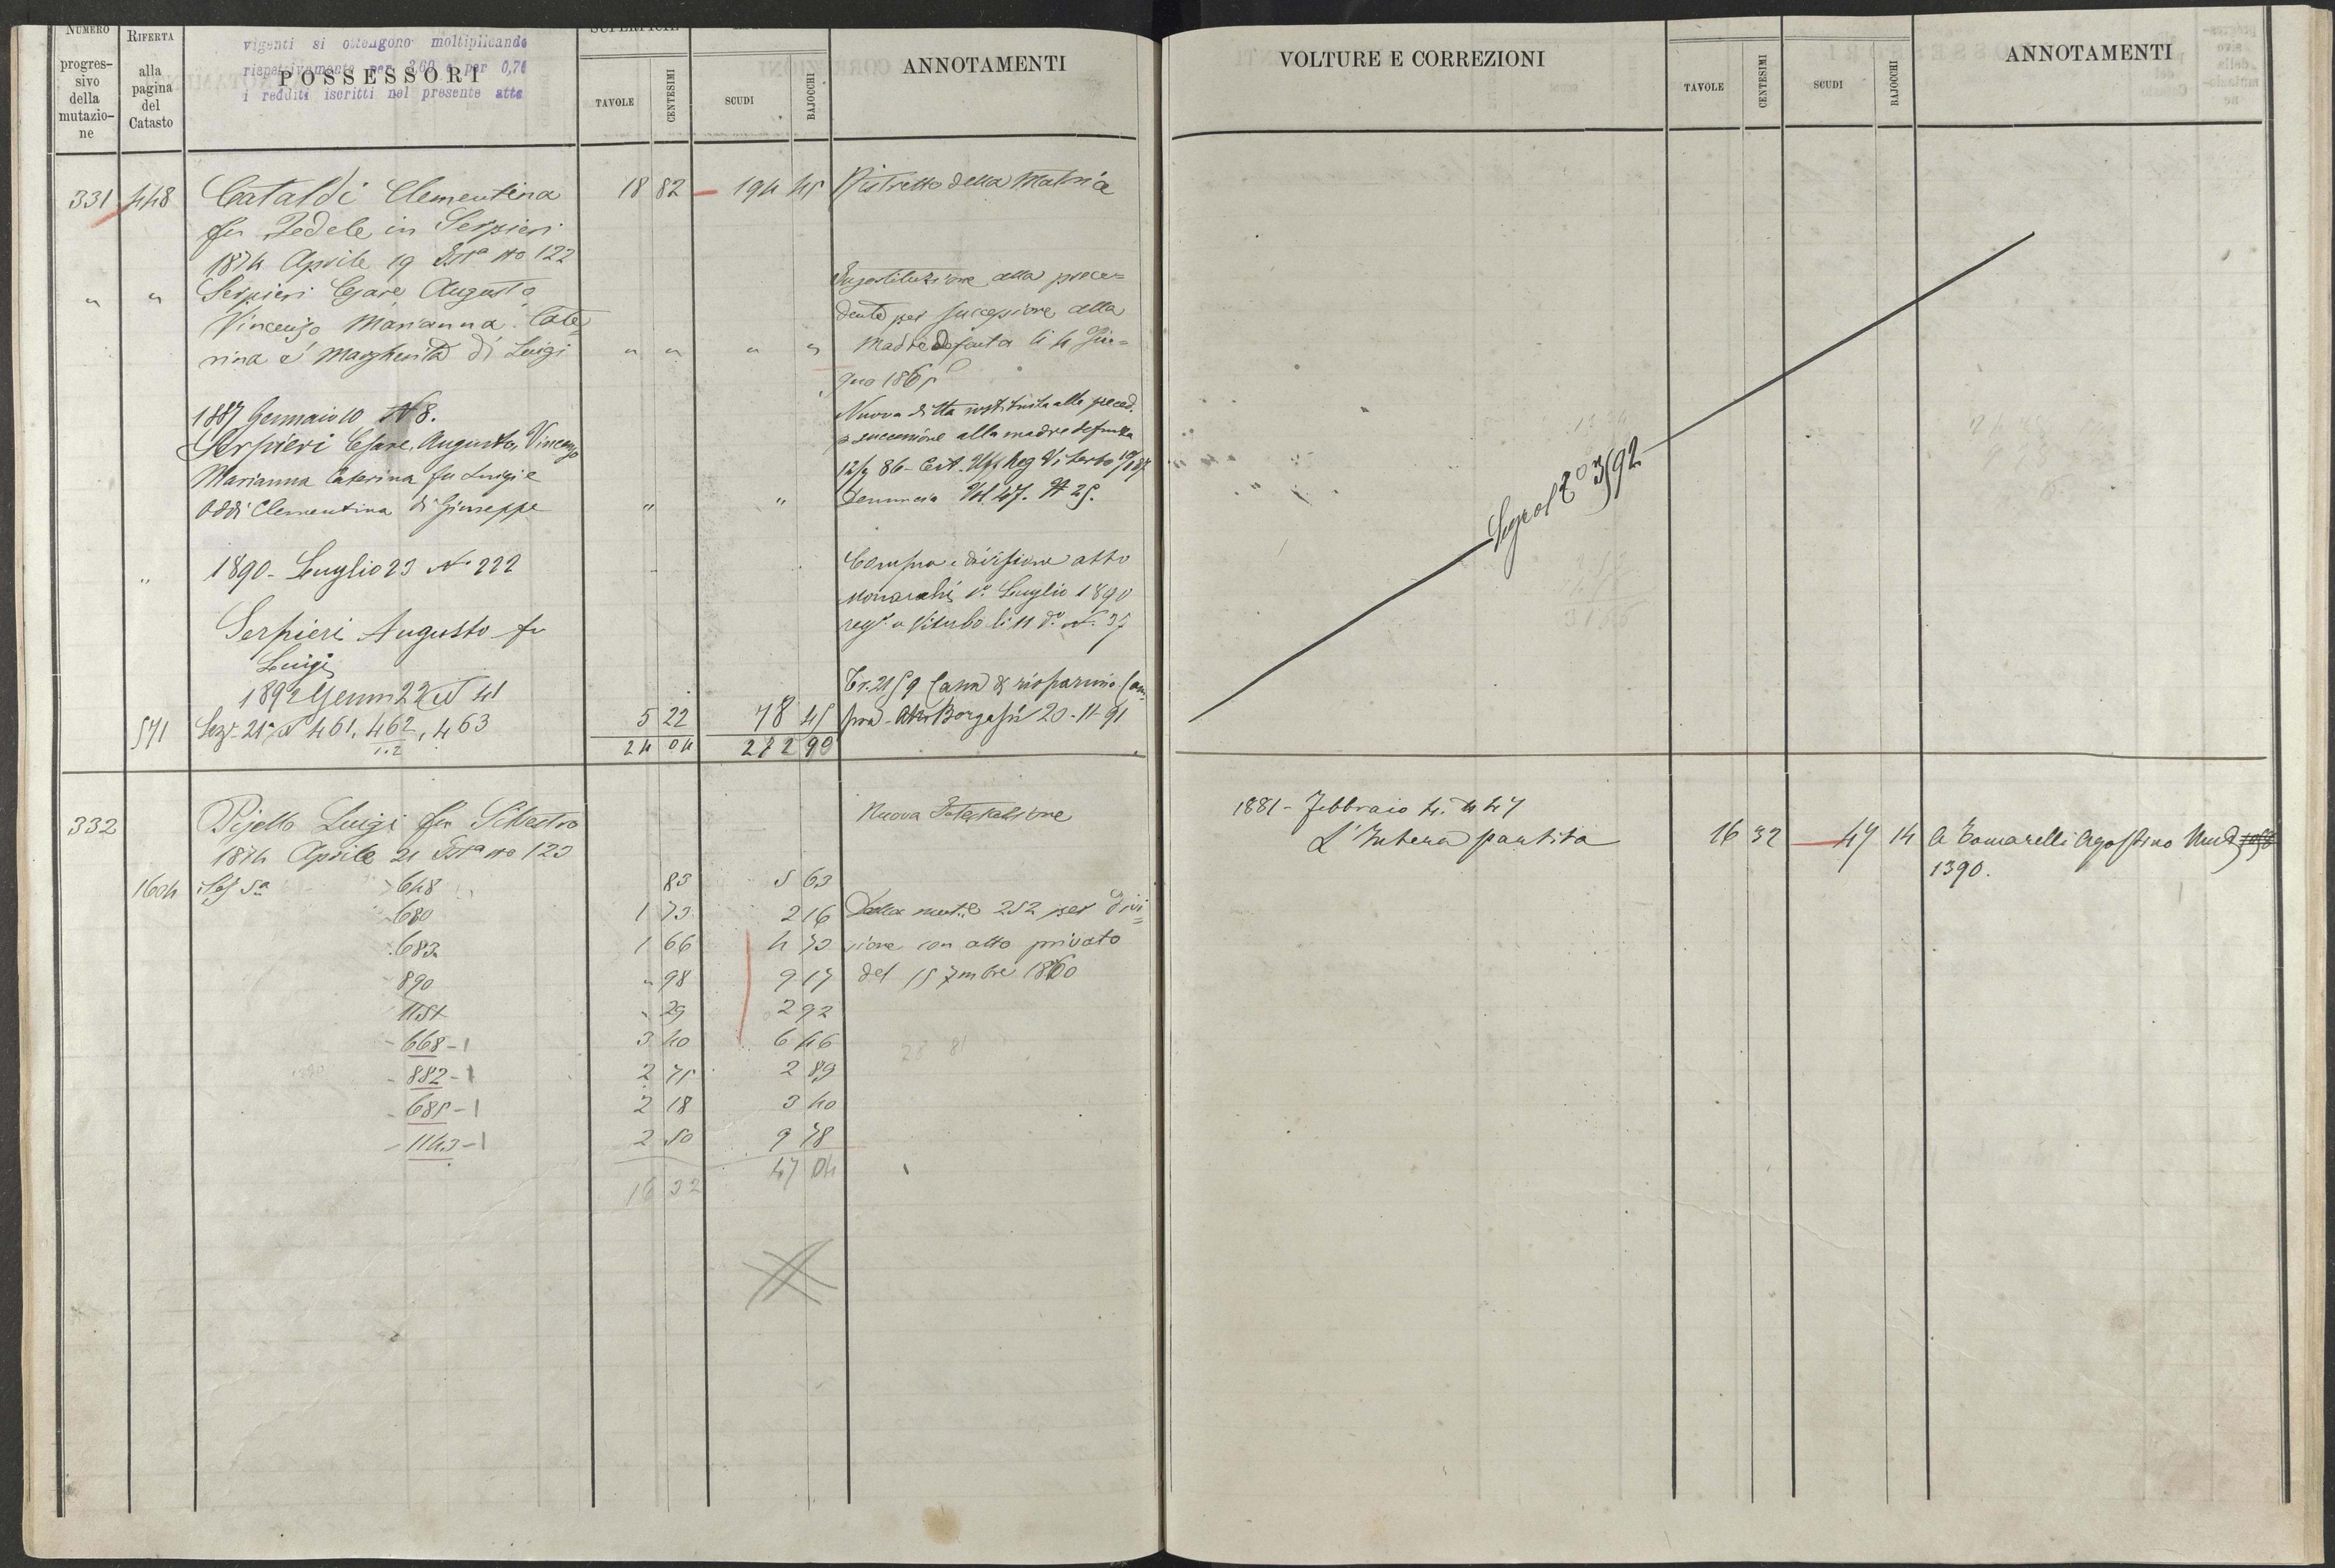 NUMERO
progres-
sivo
della
mutazio-
ne
RIFERTA
alla
pagina
del
Catasto
vigenti si ottengono moltiplicando
rispettivamente per 3,60 e per 0,76
i redditi iscritti nel presente atto
POSSESSORI
SUPERFICIE
TAVOLE
CENTESIMI
SCUDI
BAJOCCHI
ANNOTAMENTI
331 448 Cataldi Clementina 18 82 194 45 Ristretto della Matrice
fu Fedele in Serpieri
1874 Aprile 19 Ista No 122
" " Serpieri Cesare Augusto
Vincenzo Marianna Cate=
rina e Margherita di Luigi " " " "
Sugostituzione alla prece=
dente per successione alla
Madre defonta li 4 Giu=
gno 1865
1887 Gennaio 10 N 8.
Serpieri Cesare, Augusto, Vincenzo
Marianna Caterina fu Luigi e
Oddi Clementina di Giuseppe " "
Nuova ditta sostituita alla preced.
p successione alla madre defunta
12/7 86 - Cert. Uff Reg Viterbo
Denuncia Vol 47. N 25.
" 1890 - Luglio 23 N. 222
Serpieri Augusto fu
Luigi
Compra e divisione atto
Monarchi 1° Luglio 1890
regto a Viterbo li 11 do N. 37
1892 Genn 22 N 41
571 Sez 21a N 461, 462, 463 5 22 78 45
1.2
24 04 272 90
Cassa di risparmio Com
pra - Atto Borgassi 20-11-91
332 Pijello Luigi fu Silvestro Nuova Intestazione
1874 Aprile 21 Ista No 123
1604 Sez 5a 648 83 5 63
680 1 73 2 16 Dalla mut.e 252 per divi
683 1 66 4 73 sione con atto privato
890 " 98 9 17 del 15 7mbre 1860
1151 " 29 2 92
668-1 3 40 6 46
882-1 2 75 2 89
685-1 2 18 3 40
1143-1 2 50 9 78
16 32 47 04
28 81
VOLTURE E CORREZIONI
TAVOLE
CENTESIMI
SCUDI
BAJOCCHI
ANNOTAMENTI
1881 - Febbraio 4. N 47
L'Intera partita 16 32 47 14 A Tomarelli Agostino Mut
1390.